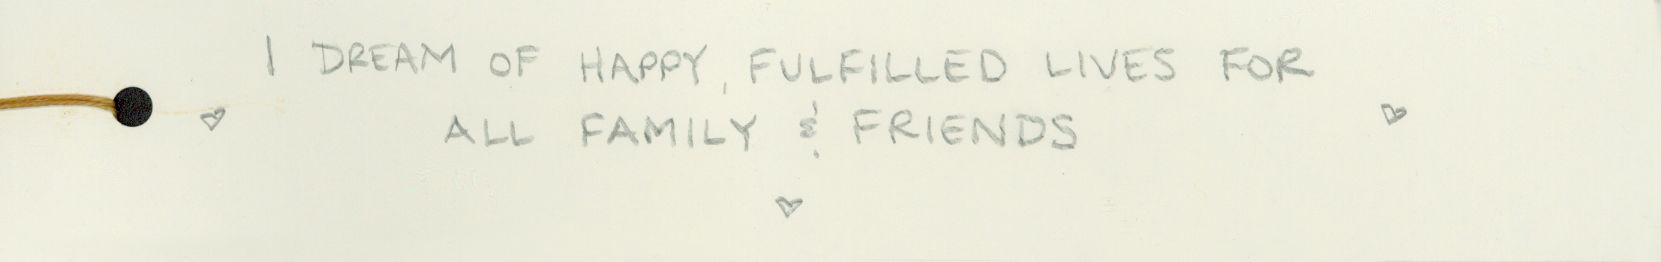 I DREAM OF HAPPY, FULFILLED LIVES FOR
ALL FAMILY & FRIENDS